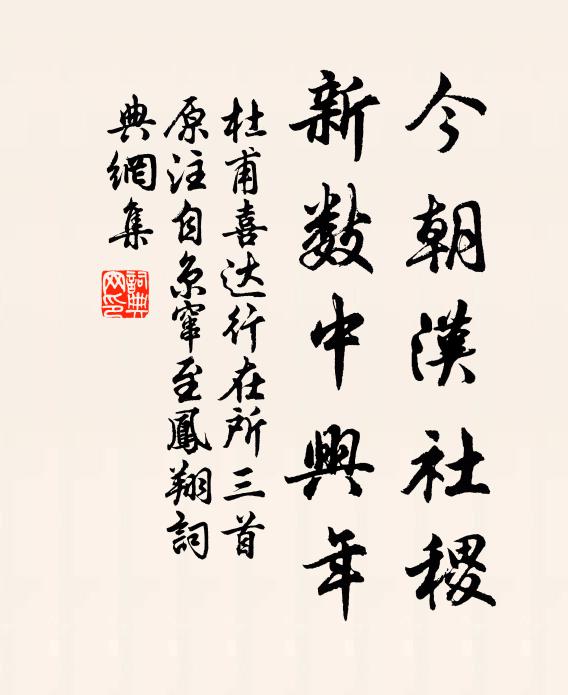 今朝漢社稷
新数中興年
杜甫喜达行在所三首
原注自京窜至鳳翔詞
典網集
詞典
网印